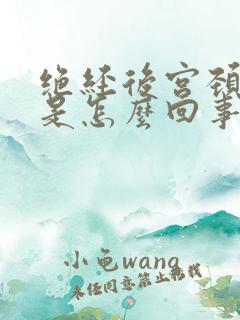 絕經後宮頸
是怎麼回事
小色wang
未经同意禁止转载